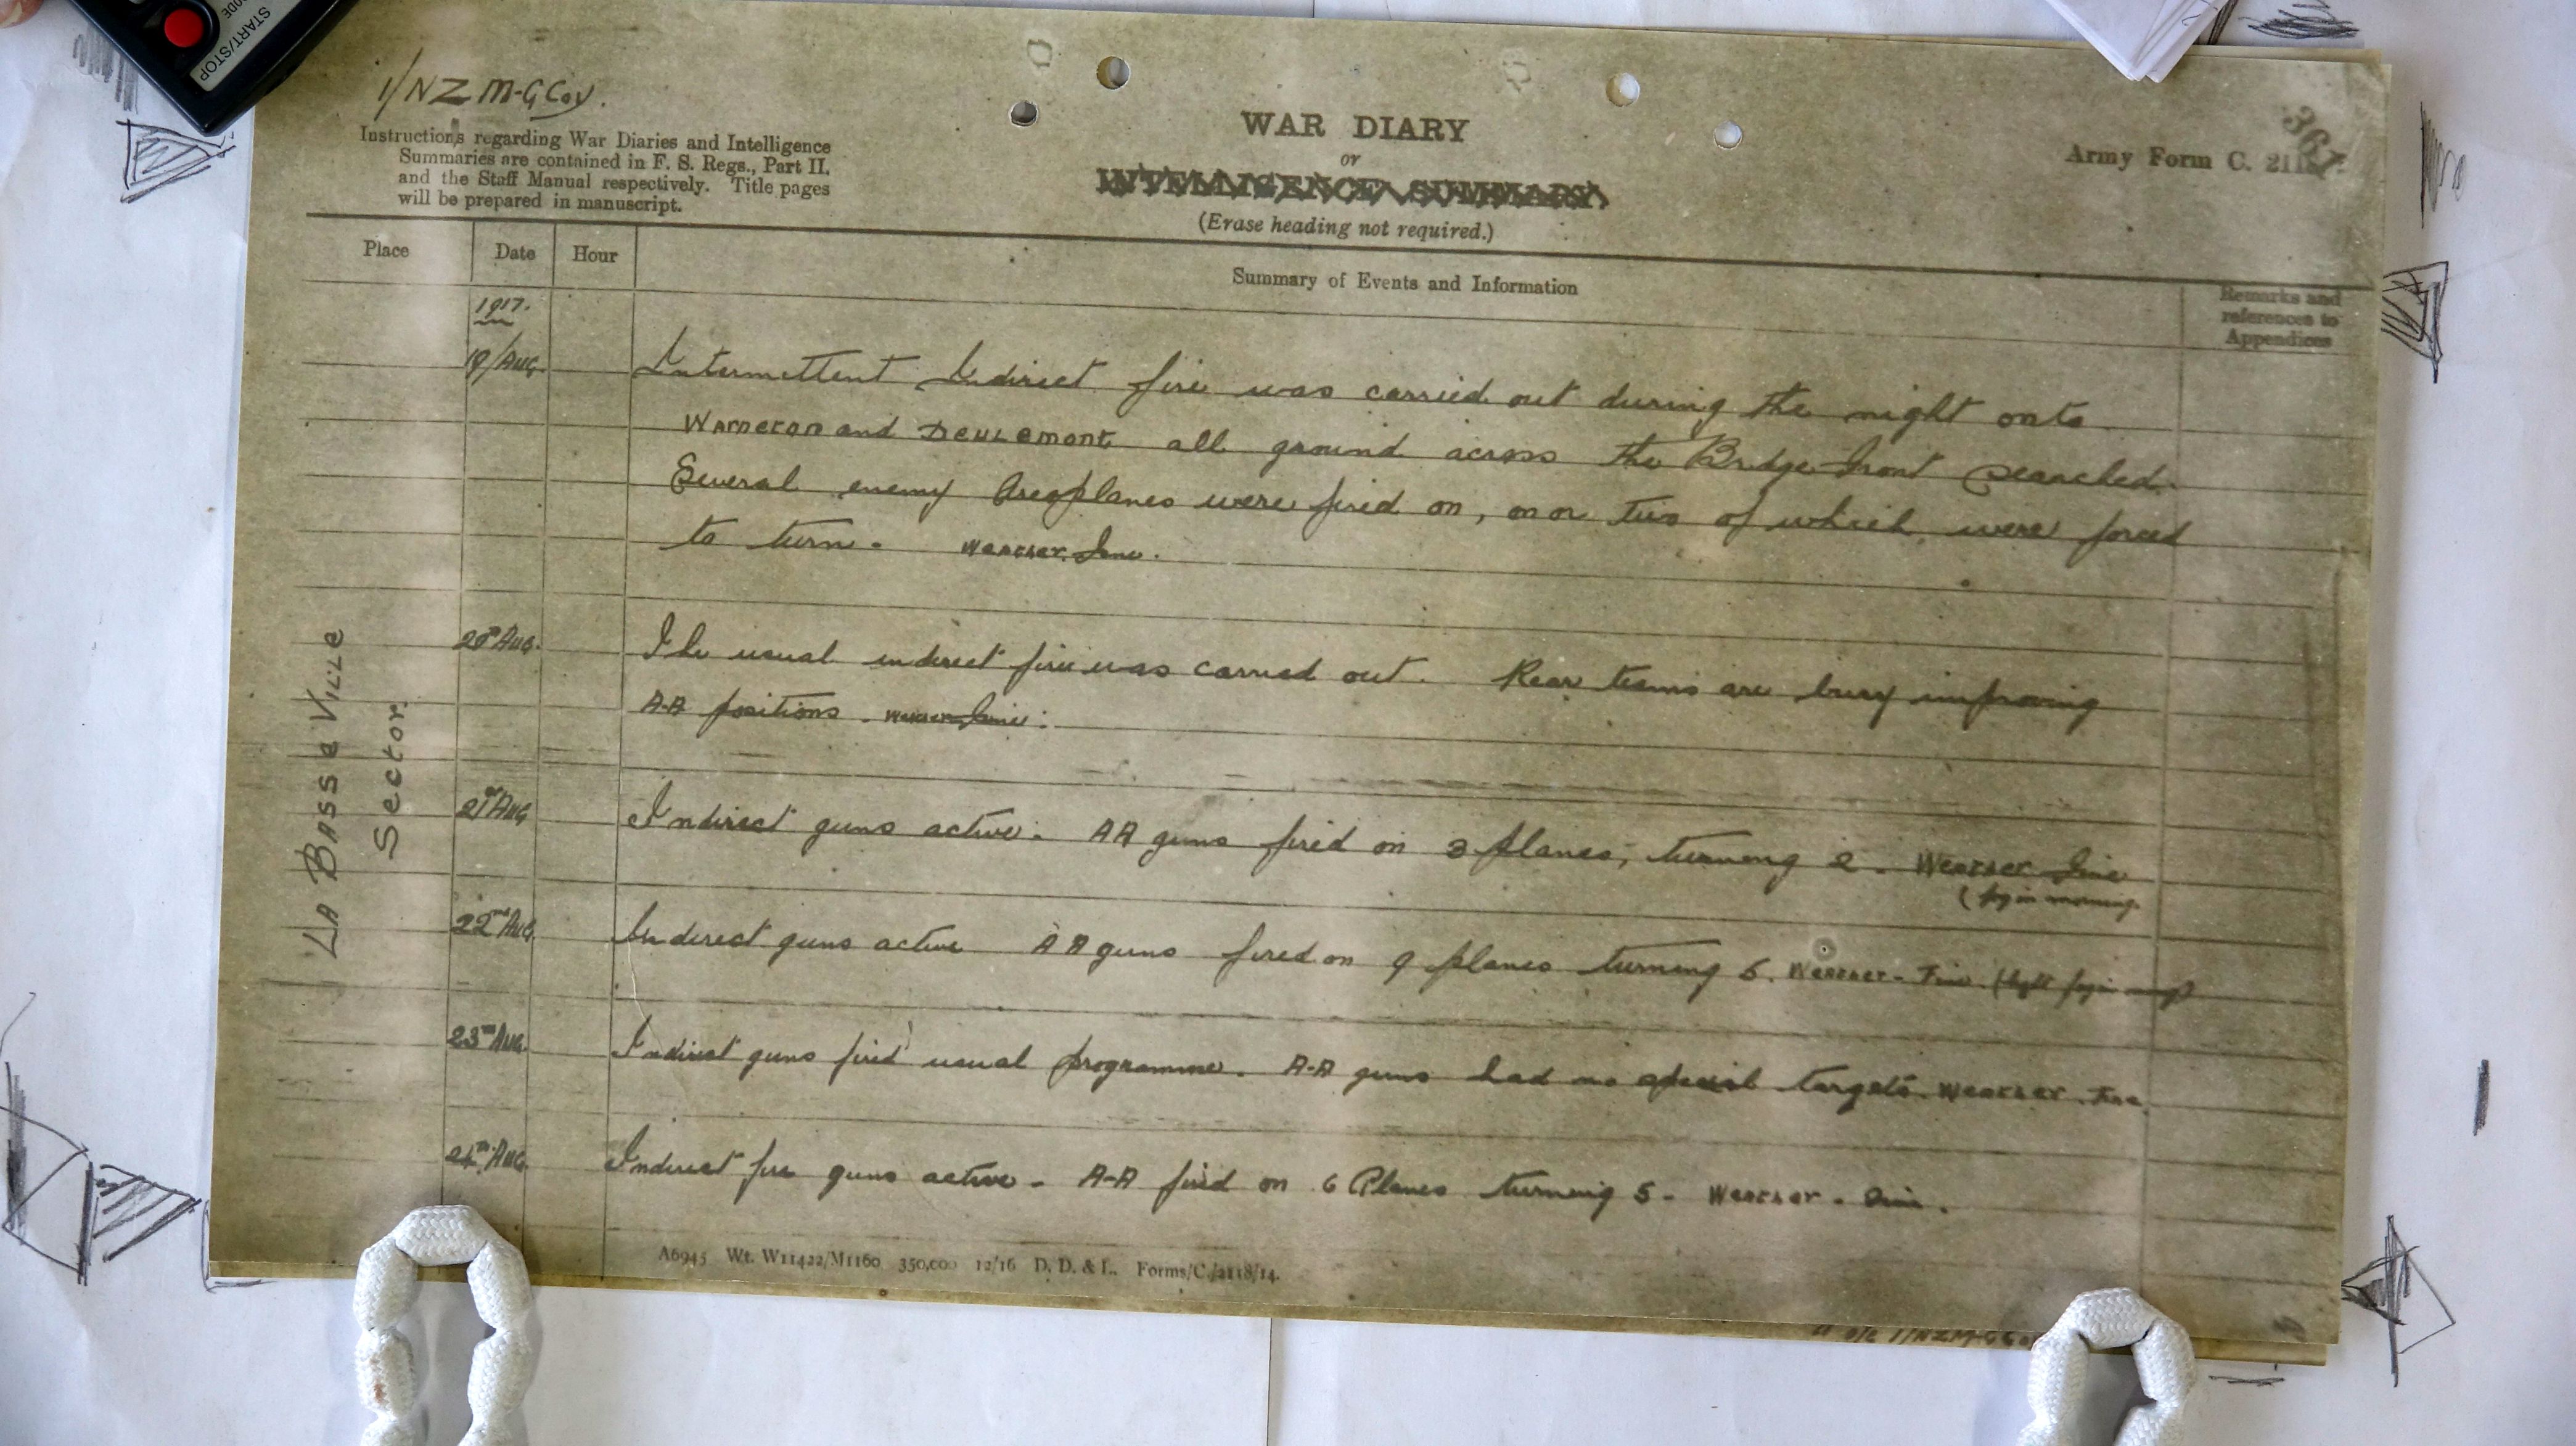 START/STOP
1/NZ M-G Coy.
Instructions regarding War Diaries and Intelligence
Summaries are contained in F. S. Regs., Part II.
and the Staff Manual respectively. Title pages
will be prepared in manuscript.
WAR DIARY
or
INTELLIGENCE SUMMARY
(Erase heading not required.)
Army Form C. 2118.
367
Place Date Hour Summary of Events and Information Remarks and
references to
Appendices
1917.
La Basse Ville
Sector.
19/Aug. Intermettent Indirect fire was carried out during the night onto
Warneton and Deulemont all ground across the Bridge front searched.
Several enemy Areoplanes were fired on, on or two of which were forced
to turn. Weather. Fine.
20th Aug. The usual indirect fire was carried out. Rear teams are busy improving
A-A positions. Weather Fine.
21st Aug Indirect guns active. AA guns fired on 3 planes, turning 2. Weather Fine
(fog in morning.
22nd Aug. Indirect guns active AA guns fired on 9 planes turning 5. Weather - Fine. (light fog in
23rd Aug. Indirect guns fired usual programme. A-A guns had no special targets. Weather. Fine.
24th Aug. Indirect fire guns active - A-A fired on 6 Planes turning 5 - Weather - Fine.
A6945 Wt. W11422/M1160 350,000 12/16 D. D. & L. Forms/C./2118/14.
O/C 1/NZ M-G Co